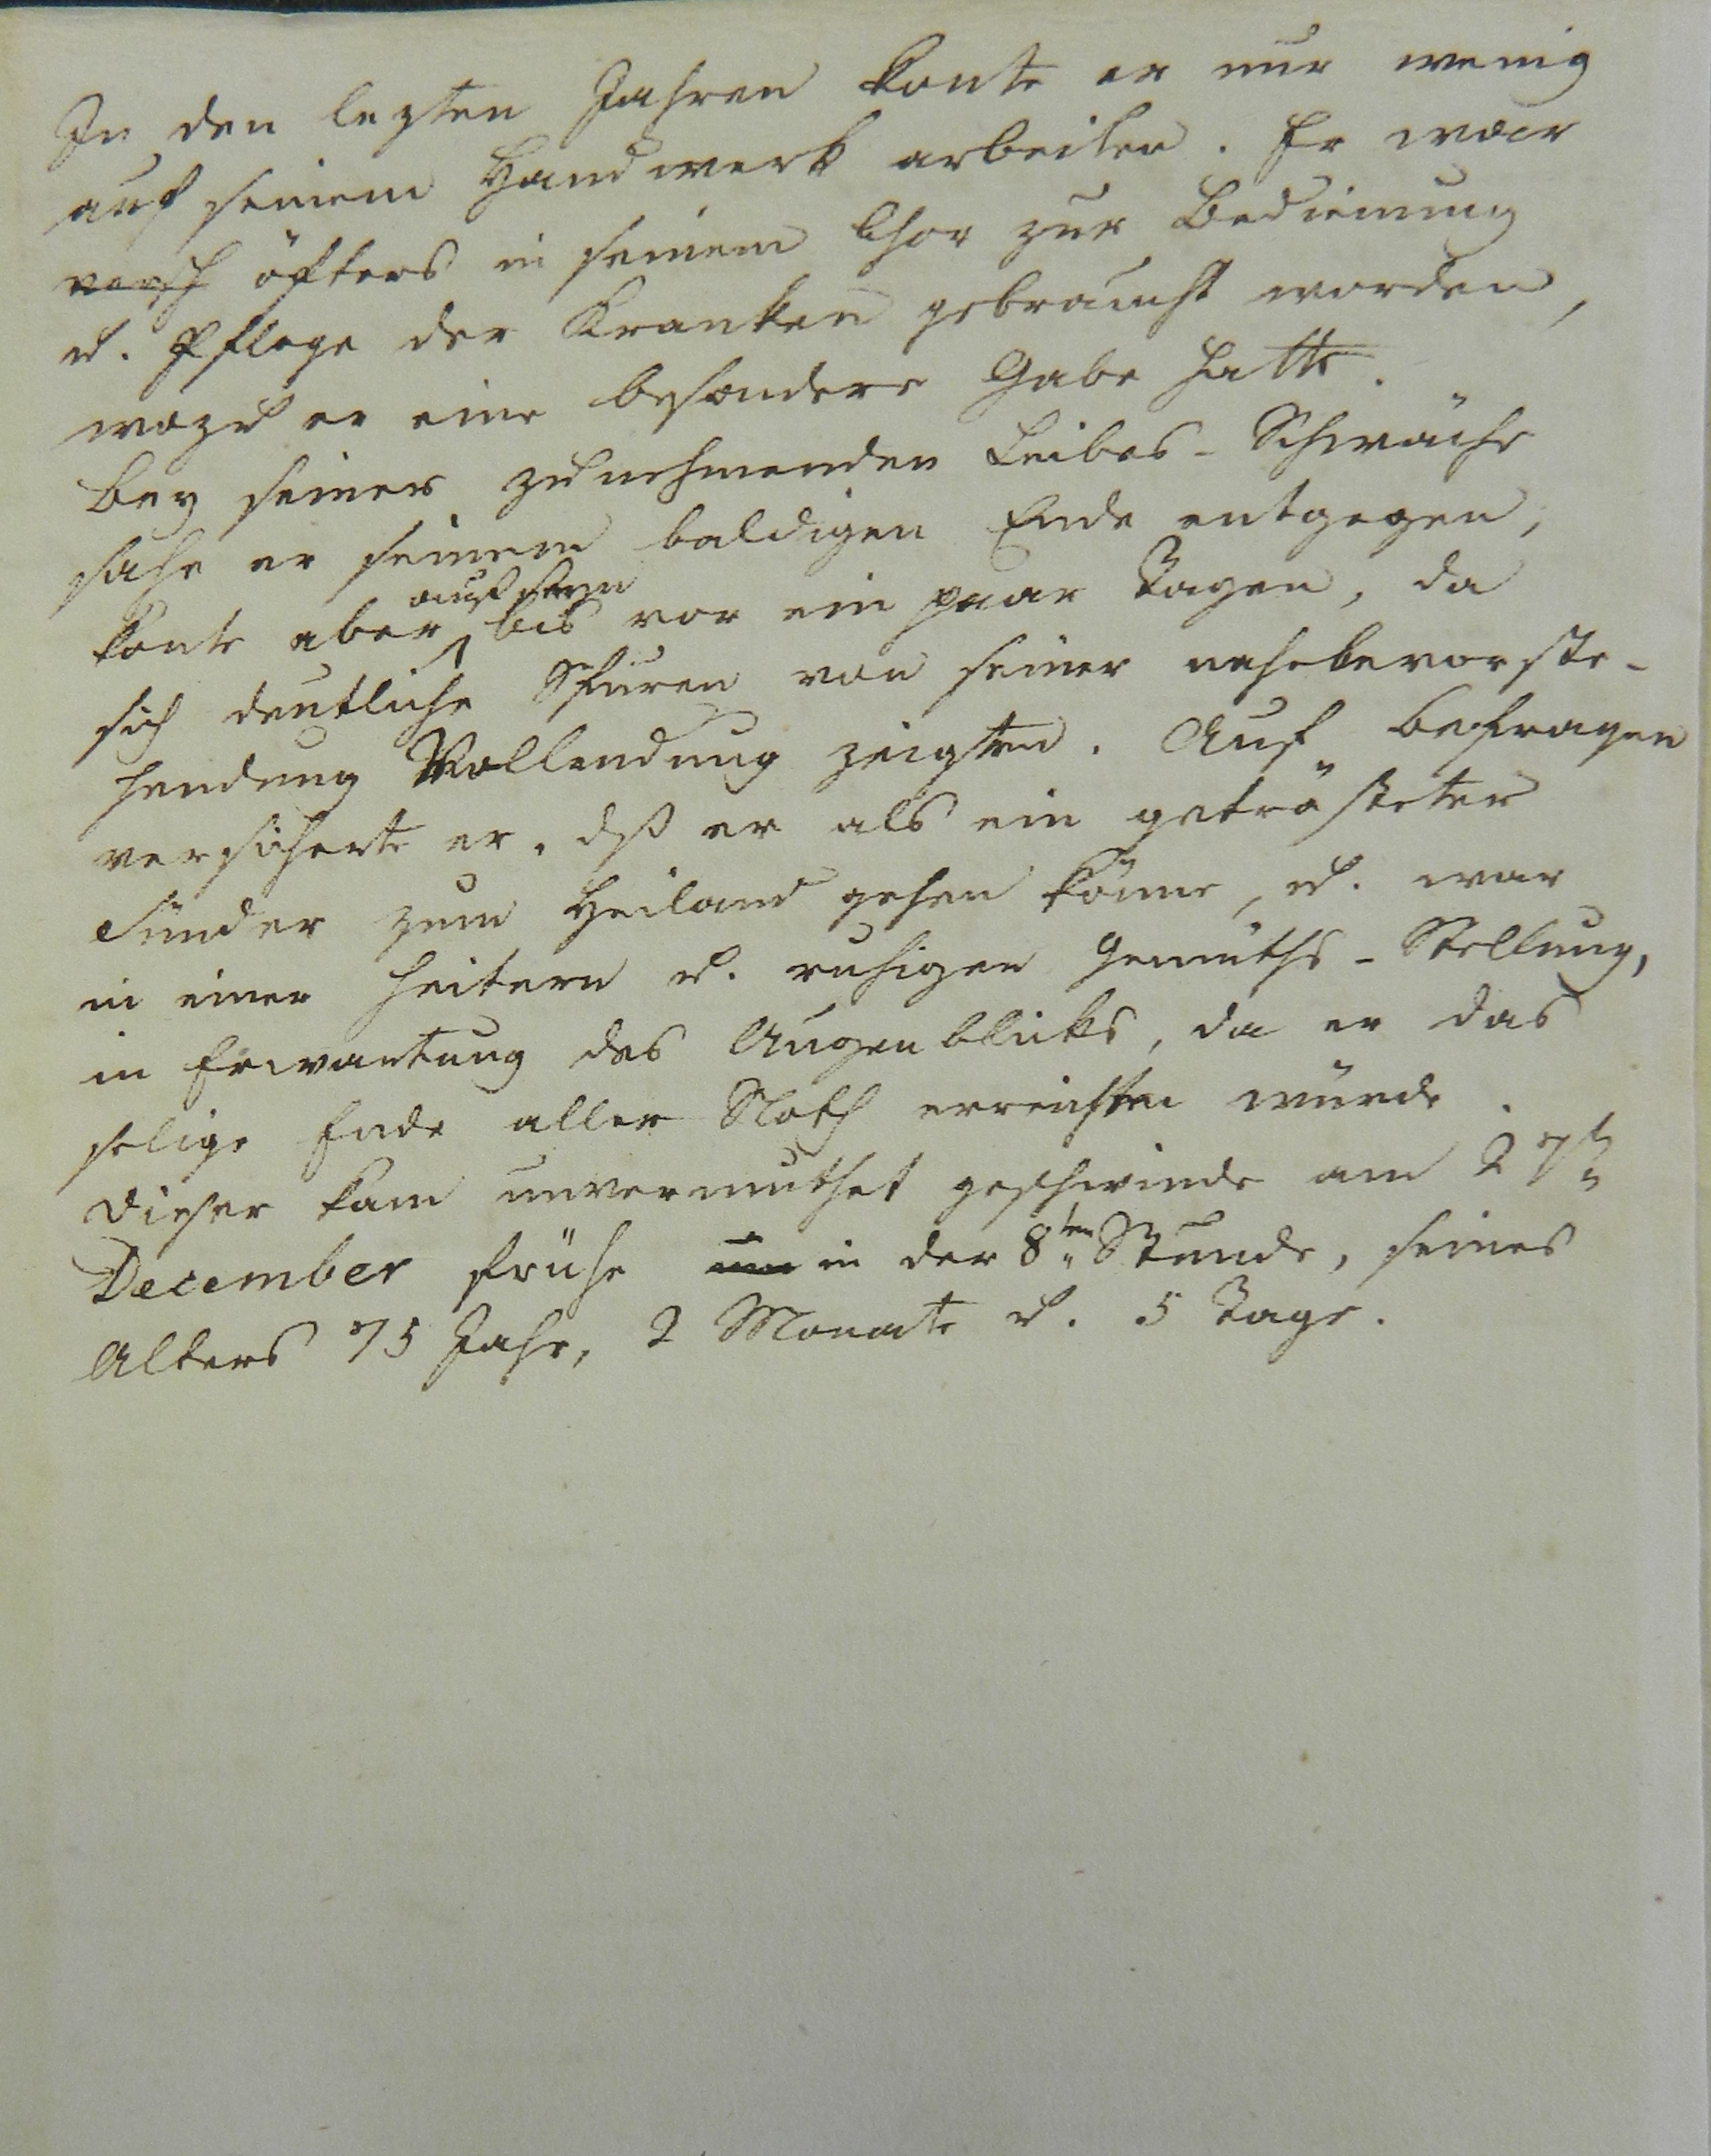 In den lezten Jahren konte er nur wenig
auf seinem Handwerk arbeiten. Er war
öfters in seinem Chor zur Bedienung
u. Pflege der Kranken gebraucht worden,
wozu er eine besondere Gabe hatte.
bey seiner zunehmenden Leibes-Schwäche
sahe er seinem baldigen Ende entgegen,
konte aber bis vor ein paar Tagen, da
sich deutliche Spuren von seiner nahebevorste-
hendung Vollendung zeigten. Auf befragen
versicherte er, dß er als ein getrösteter
Sünder zum Heiland gehen könne, u. war
in einer heitern u. ruhigen Gemüths-Stellung,
in Erwartung des Augenbliks, da er das
selige Ende aller Noth erreichen würde.
Dieser kam unvermuthet geschwinde am 27tn
December frühe in der 8ten Stunde, seines
Alters 75 Jahr, 2 Monate u. 5 Tage.